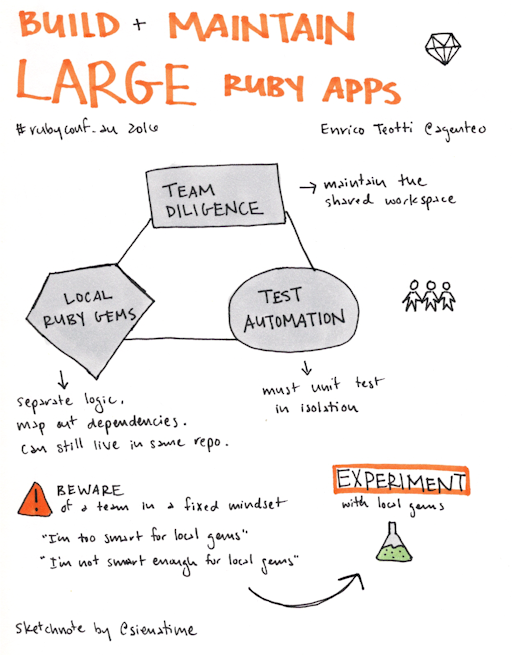 BUILD + MAINTAIN
LARGE RUBY APPS
#rubyconf_au 2016
Enrico Teotti @agenteo
TEAM
DILIGENCE
→ maintain the
shared workspace
LOCAL
RUBY GEMS
TEST
AUTOMATION
separate logic.
map out dependencies.
can still live in same repo.
must unit test
in isolation
BEWARE
of a team in a fixed mindset
"I'm too smart for local gems"
"I'm not smart enough for local gems"
EXPERIMENT
with local gems
sketchnote by @sienatime